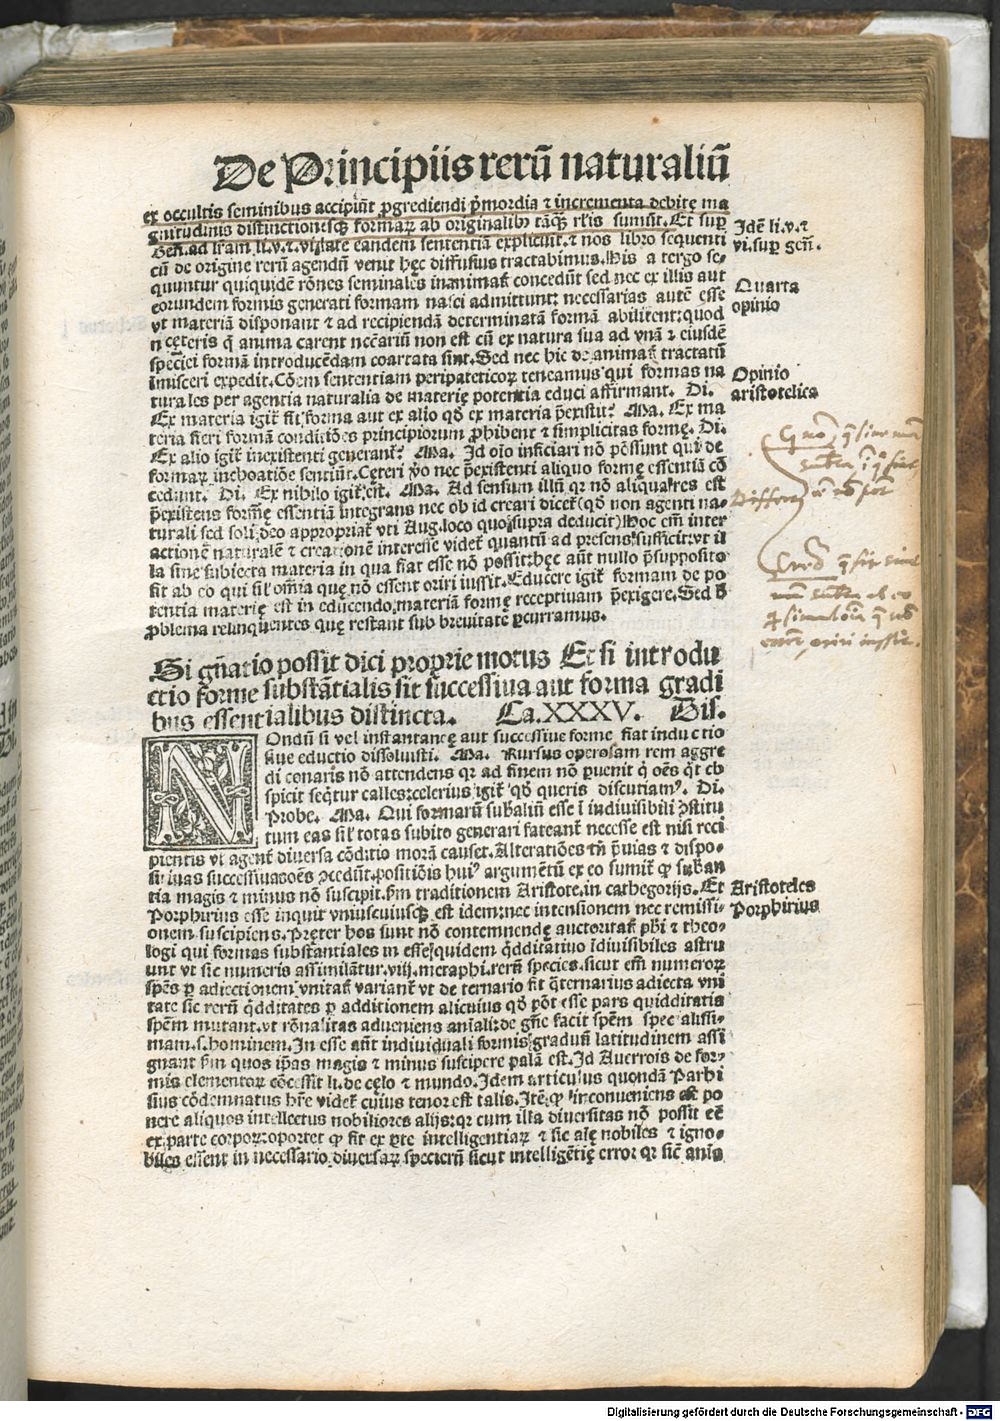 De Principiis rerū naturaliū
ex occultis seminibus accipiūt ꝓgrediendi p̄mordia ⁊ incrementa debitę ma
gnitudinis distinctionesqꝫ formaꝝ ab originalibꝰ tāqꝫ rl̄is sumūt. Et suꝑ
Gen̄. ad lr̄am li.v.⁊.vi. late eandem sententiā explicuit. ⁊ nos libro sequenti
cū de origine rerū agendū venit hęc diffusius tractabimus. His a tergo se-
quuntur quiquidē rōnes seminales inanimat̄ concedūt sed nec ex illis aut
eorundem formis generati formam nasci admittunt: necessarias autē esse
vt materiā disponant ⁊ ad recipiendā determinatā formā abilitent: quod
n cęteris q̄ anima carent nec̄cariū non est cū ex natura sua ad vnā ⁊ eiusdē
speciei formā introducēdam coartata sint. Sed nec hic de animat̄ tractatū
imisceri expedit. Cōem sententiam peripateticoꝝ teneamus qui formas na
turales per agentia naturalia de materię potentia educi affirmant. Di.
Ex materia igit̄ fit forma aut ex alio qd̄ ex materia p̄existit? Ma. Ex ma
teria fieri formā conditiōes principiorum ꝓhibent ⁊ simplicitas formę. Di.
Ex alio igit̄ inexistenti generant̄? Ma. Id oīo inficiari nō possunt qui de
formaꝝ inchoatiōe sentiūt. Cęteri v̊o nec p̄existenti aliquo formę essentiā cō
cedunt. Di. Ex nihilo igit̄ est. Ma. Ad sensum illū qr nō aliqua res est
p̄existens formę essentiā integrans nec ob id creari dicet̄ (qd̄ non agenti na-
turali sed soli deo appropriat̄ vti Aug. loco quo supra deducit) Hoc em̄ inter
actionē naturalē ⁊ creationē interesse videt̄ quantū ad presens sufficit: vt il
la sine subiecta materia in qua fiat esse nō possit: hęc aūt nullo p̄supposito
fit ab eo qui sil̄ om̄ia quę nō essent oriri iussit. Educere igit̄ formam de po
tentia materię est in educendo materiā formę receptiuam p̄exigere. Sed
ꝓblema relinquentes quę restant sub breuitate ꝑcurramus.
Si gn̄atio possit dici proprie motus Et si introdu
ctio forme substātialis sit successiua aut forma gradi
bus essentialibus distincta. Ca.XXXV. Dis.
NOndū si vel instantaneę aut successiue forme fiat inductio
siue eductio dissoluisti. Ma. Rursus operosam rem aggre
di conaris nō attendens qr ad finem nō ꝑuenit q̇ oēs q̄t cō
spicit seqt̄ur calles: celerius igit̄ qd̄ queris discutiamꝰ. Di.
Probe. Ma. Qui formarū subaliū esse ī indiuisibili ↄstitu
tum eas sil̄ totas subito generari fateant̄ necesse est nisi reci
pientis vt agent̄ diuersa cōditio morā causet. Alteratiōes tn̄ p̄uias ⁊ dispo-
sitiuas successiuas oēs ↄcedūt. positiōis huiꝰ argumētū ex eo sumit̄ ꝙ suban
tia magis ⁊ minus nō suscipit. ẜm traditionem Aristote. in cathegorijs. Et
Porphirius esse inquit vniuscuiusqꝫ est idem: nec intensionem nec remissi-
onem suscipiens. Pręter hos sunt nō contemnendę auctoritat̄ ph̄i ⁊ theo-
logi qui formas substantiales in esse quidem qdditatiuo īdiuisibiles astru
unt vt sic numeris assimilātur. viij. metaphi. rerū species. sicut em̄ numeroꝝ
sp̄es ꝑ adiectionem vnitat̄ variant̄ vt de ternario fit q̄ternarius adiecta vni
tate sic rerū qdditates ꝑ additionem alicuius qd̄ pōt esse pars quidditatis
sp̄em mutant. vt rōnalitas adueniens aīali: de gn̄e facit sp̄em specialissi-
mam. s. hominem. In esse aūt indiuiduali formis graduū latitudinem assi
gnant ẜm quos ip̄as magis ⁊ minus suscipere palā est. Id Auerrois de for-
mis elementoꝝ cōcessit li. de cęlo ⁊ mundo. Idem articulus quondā Parhi
sius cōdemnatus hr̄e videt̄ cuius tenor est talis. Itē ꝙ incōueniens est po
nere aliquos intellectus nobiliores alijs: qr cum illa diuersitas nō possit eē
ex parte corpoꝝ: oportet ꝙ sit ex ꝑte intelligentiaꝝ ⁊ sic aīę nobiles ⁊ igno-
biles essent in necessario diuersaꝝ specierū sicut intelligētię error qr sic anīa
Idē li.v.⁊
vi. suꝑ gen̄.
Quarta
opinio
Opinio
aristotelica
Aristoteles
Porphirius
oriri iussit.
Digitalisierung gefördert durch die Deutsche Forschungsgemeinschaft - DFG